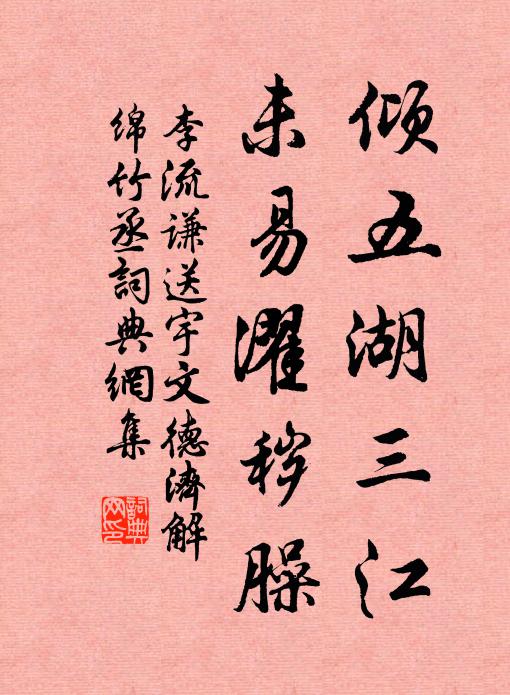 倾五湖三江
未易濯秽臊
李流谦送宇文德济解
绵竹丞詞典網集
詞典網印